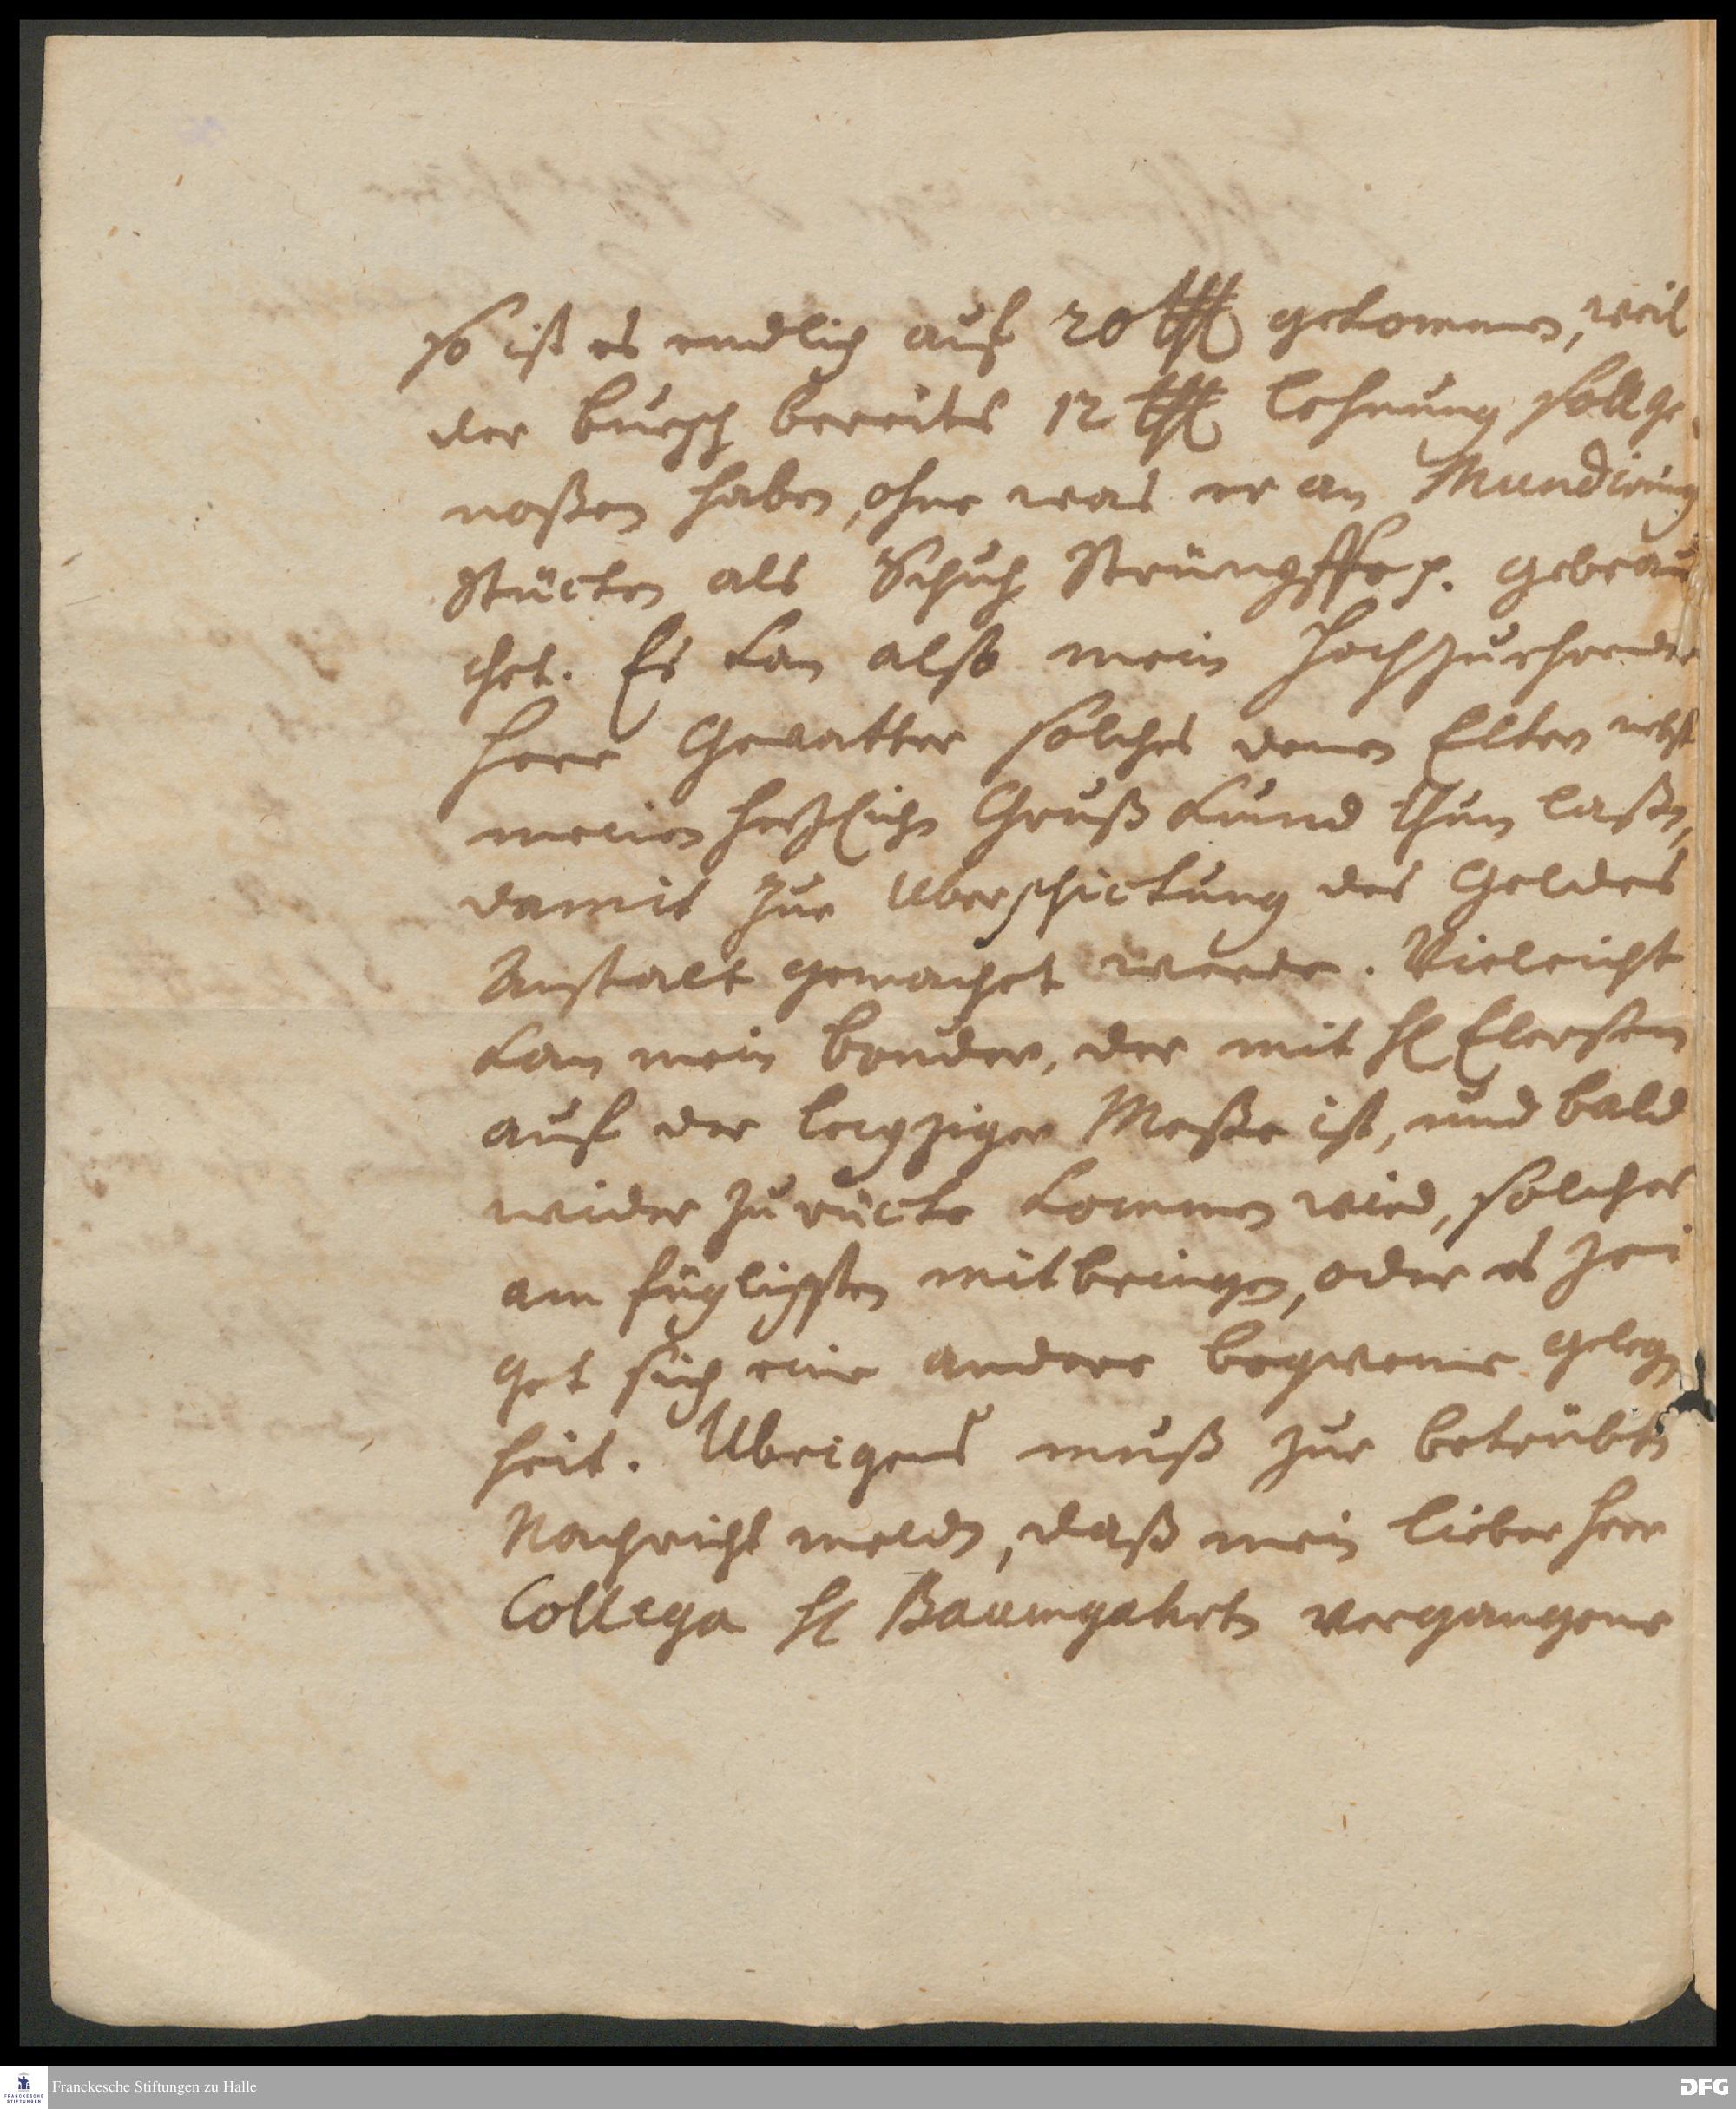 so ist es endlich auf 20 thl gekommen, weil
der bursch bereits 12 thl Lehnung soll ge-
noßen haben, ohne was er an Mundirung
Stücken als Schuh Strümpffe p. gebrau
chet. Es kan also mein Hochzuehrender
Herr Gevatter solches denen Eltern nebst
meinen herzlichen Gruß kund thun laßen,
damit zur Uberschickung des Geldes
Anstalt gemachet werde. Vieleicht
kan mein bruder, der mit H. Elersen
auf der leipziger Meße ist, und bald
wider zurücke kommen wird, solches
am füglichsten mitbringen, oder es zei
get sich eine andere beqveme gelegen
heit. Ubrigens muß zur betrübten
Nachricht melden, daß mein lieber Herr
Collega H. Baumgahrten vergangene
Franckesche Stiftungen zu Halle
DFG